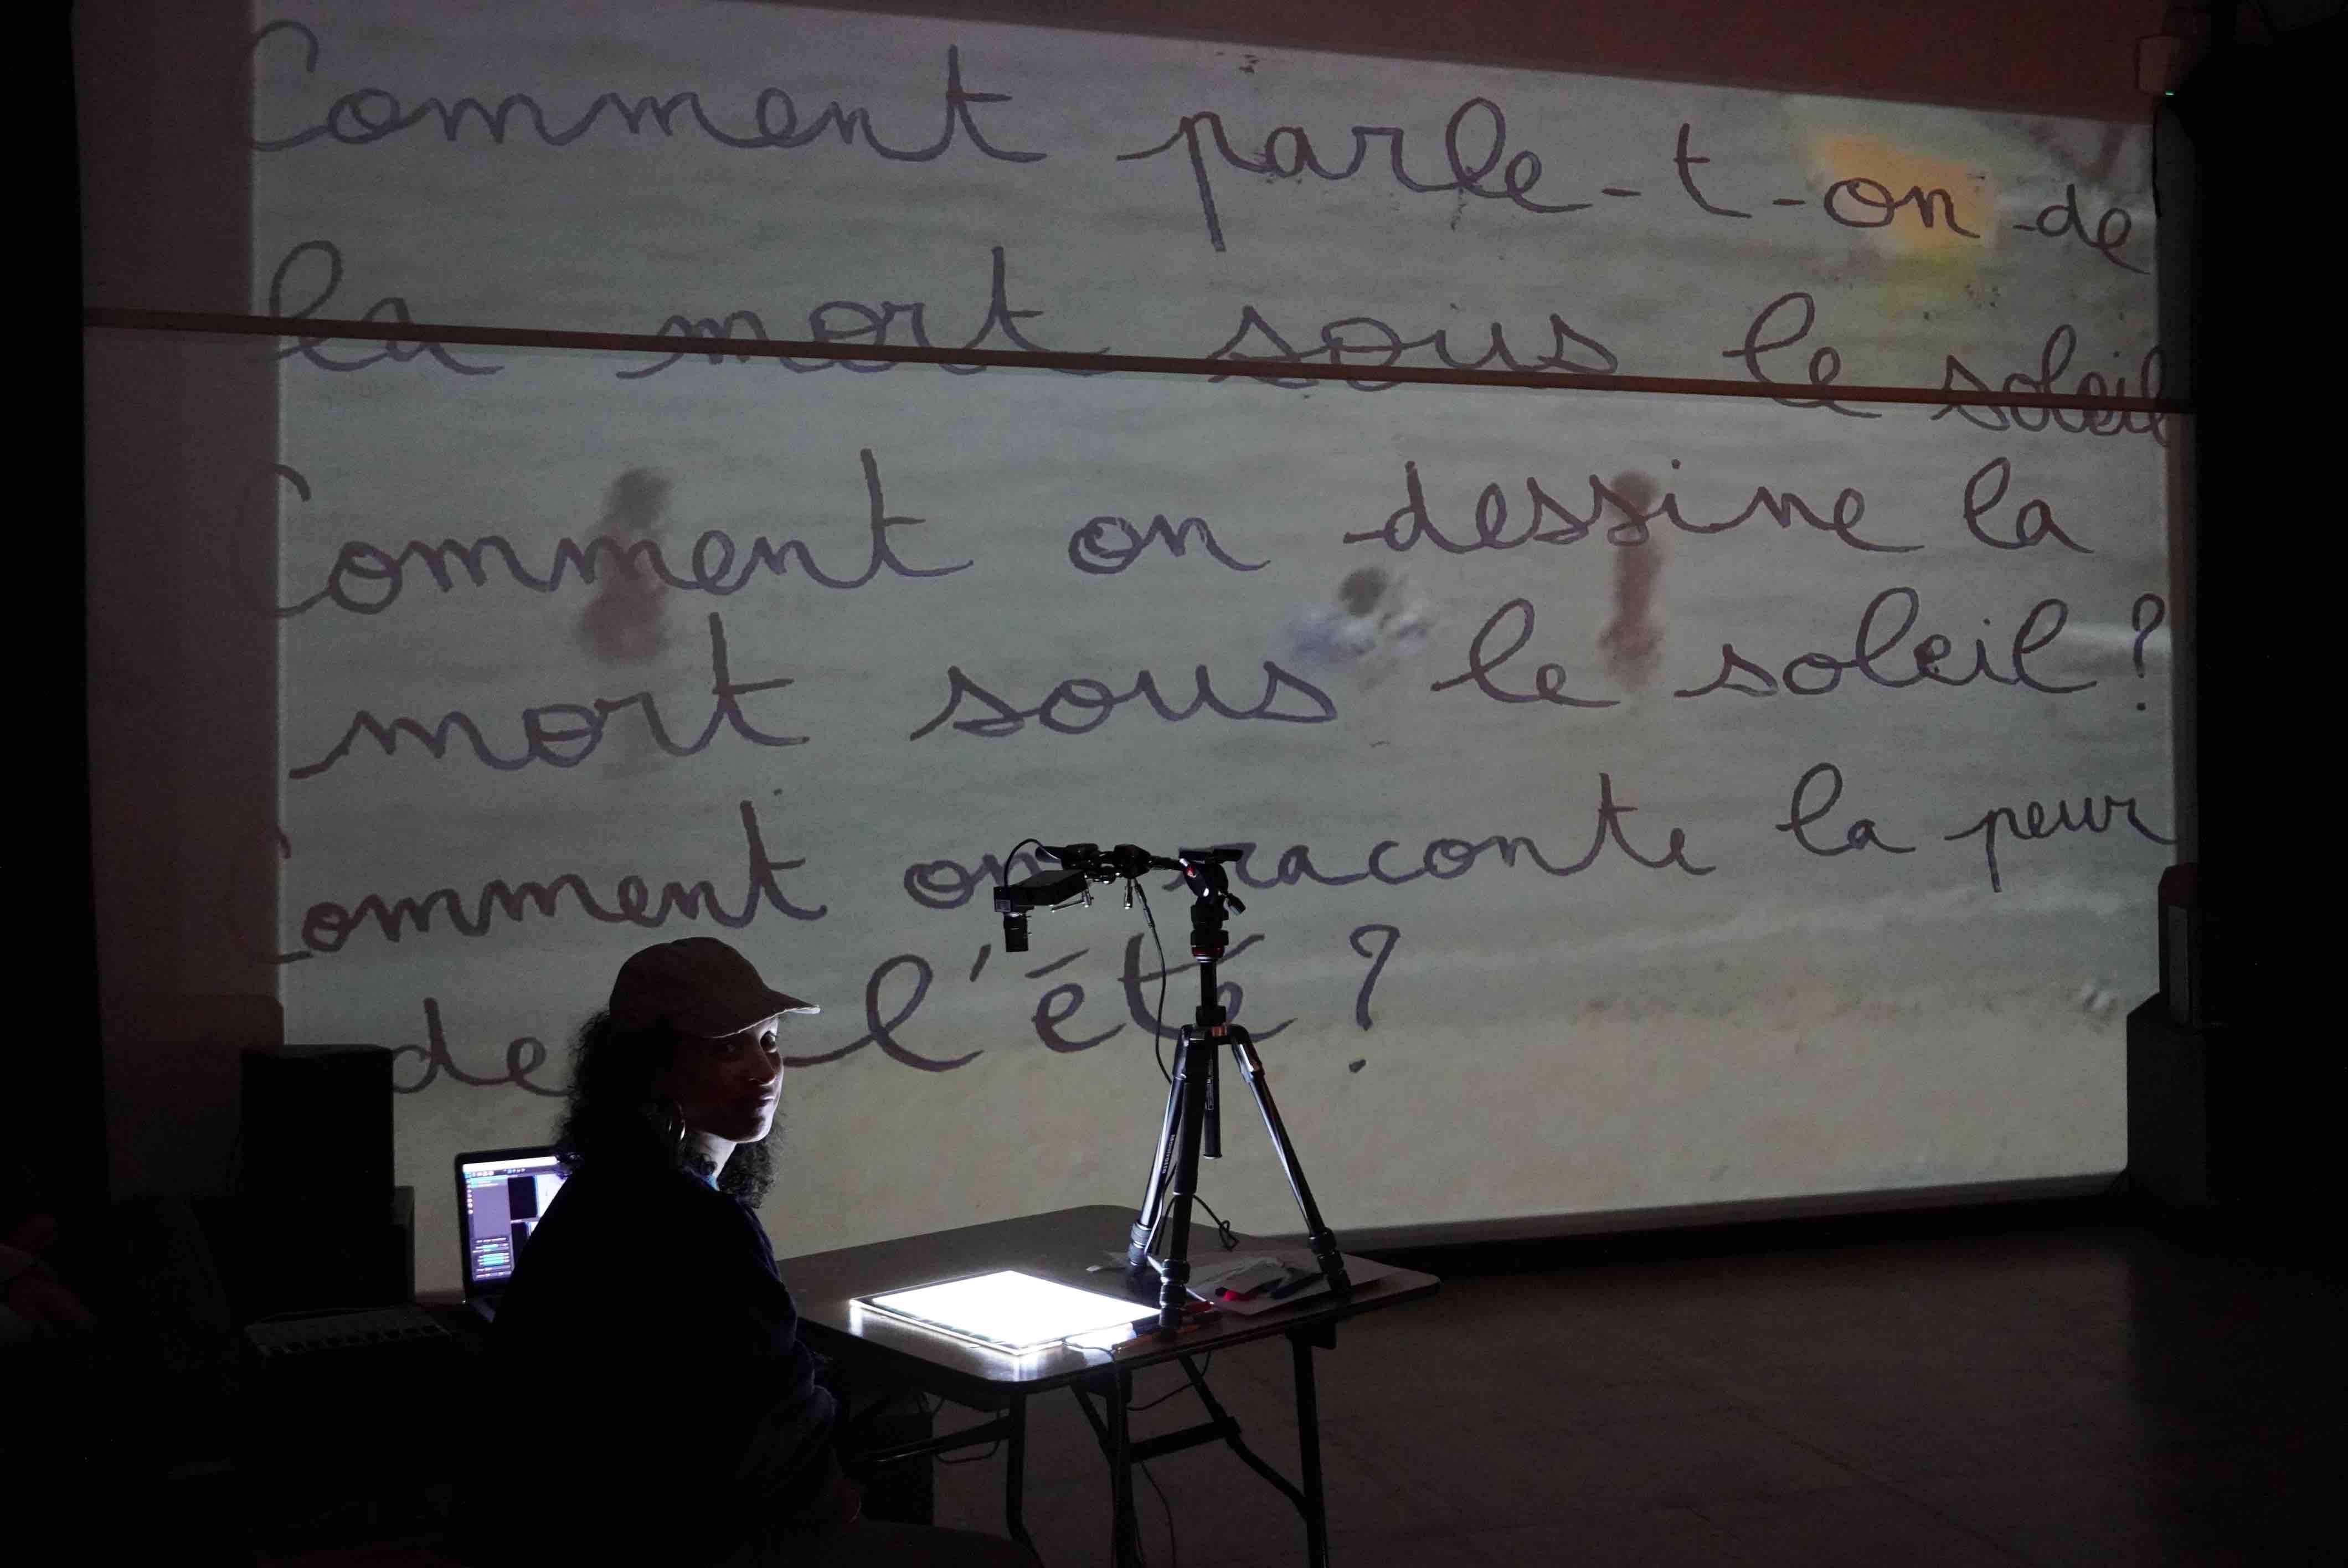 Comment parle-t-on de
la mort sous le soleil
Comment on dessine la
mort sous le soleil ?
Comment on raconte la peur
de l'été ?